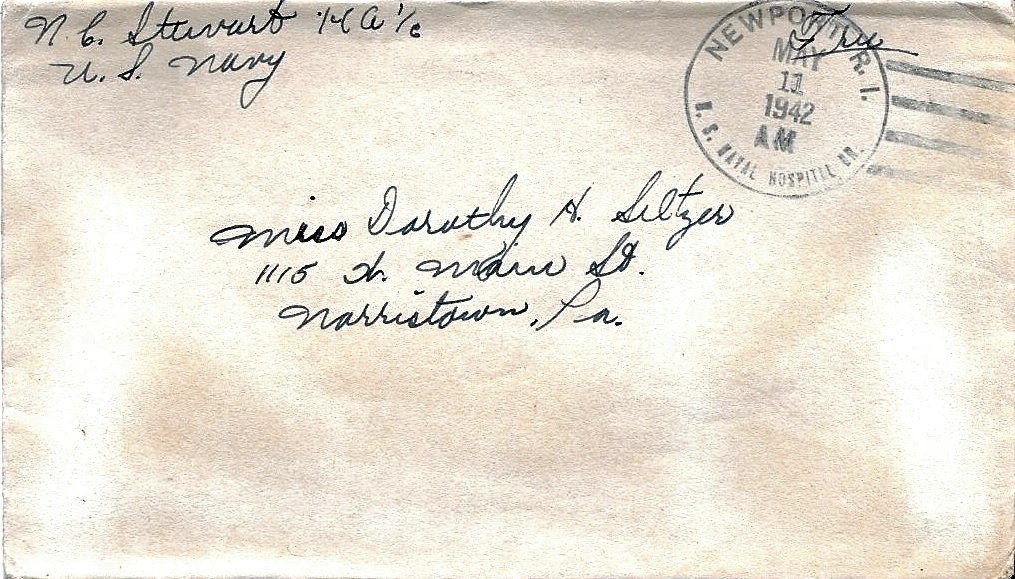 N. C. Stewart HA 1/c
U. S. Navy
Free
NEWPORT, R. I.
MAY
11
1942
AM
U. S. NAVAL HOSPITAL BR.
Miss Dorothy H. Seltzer
1115 W. Main St.
Norristown, Pa.